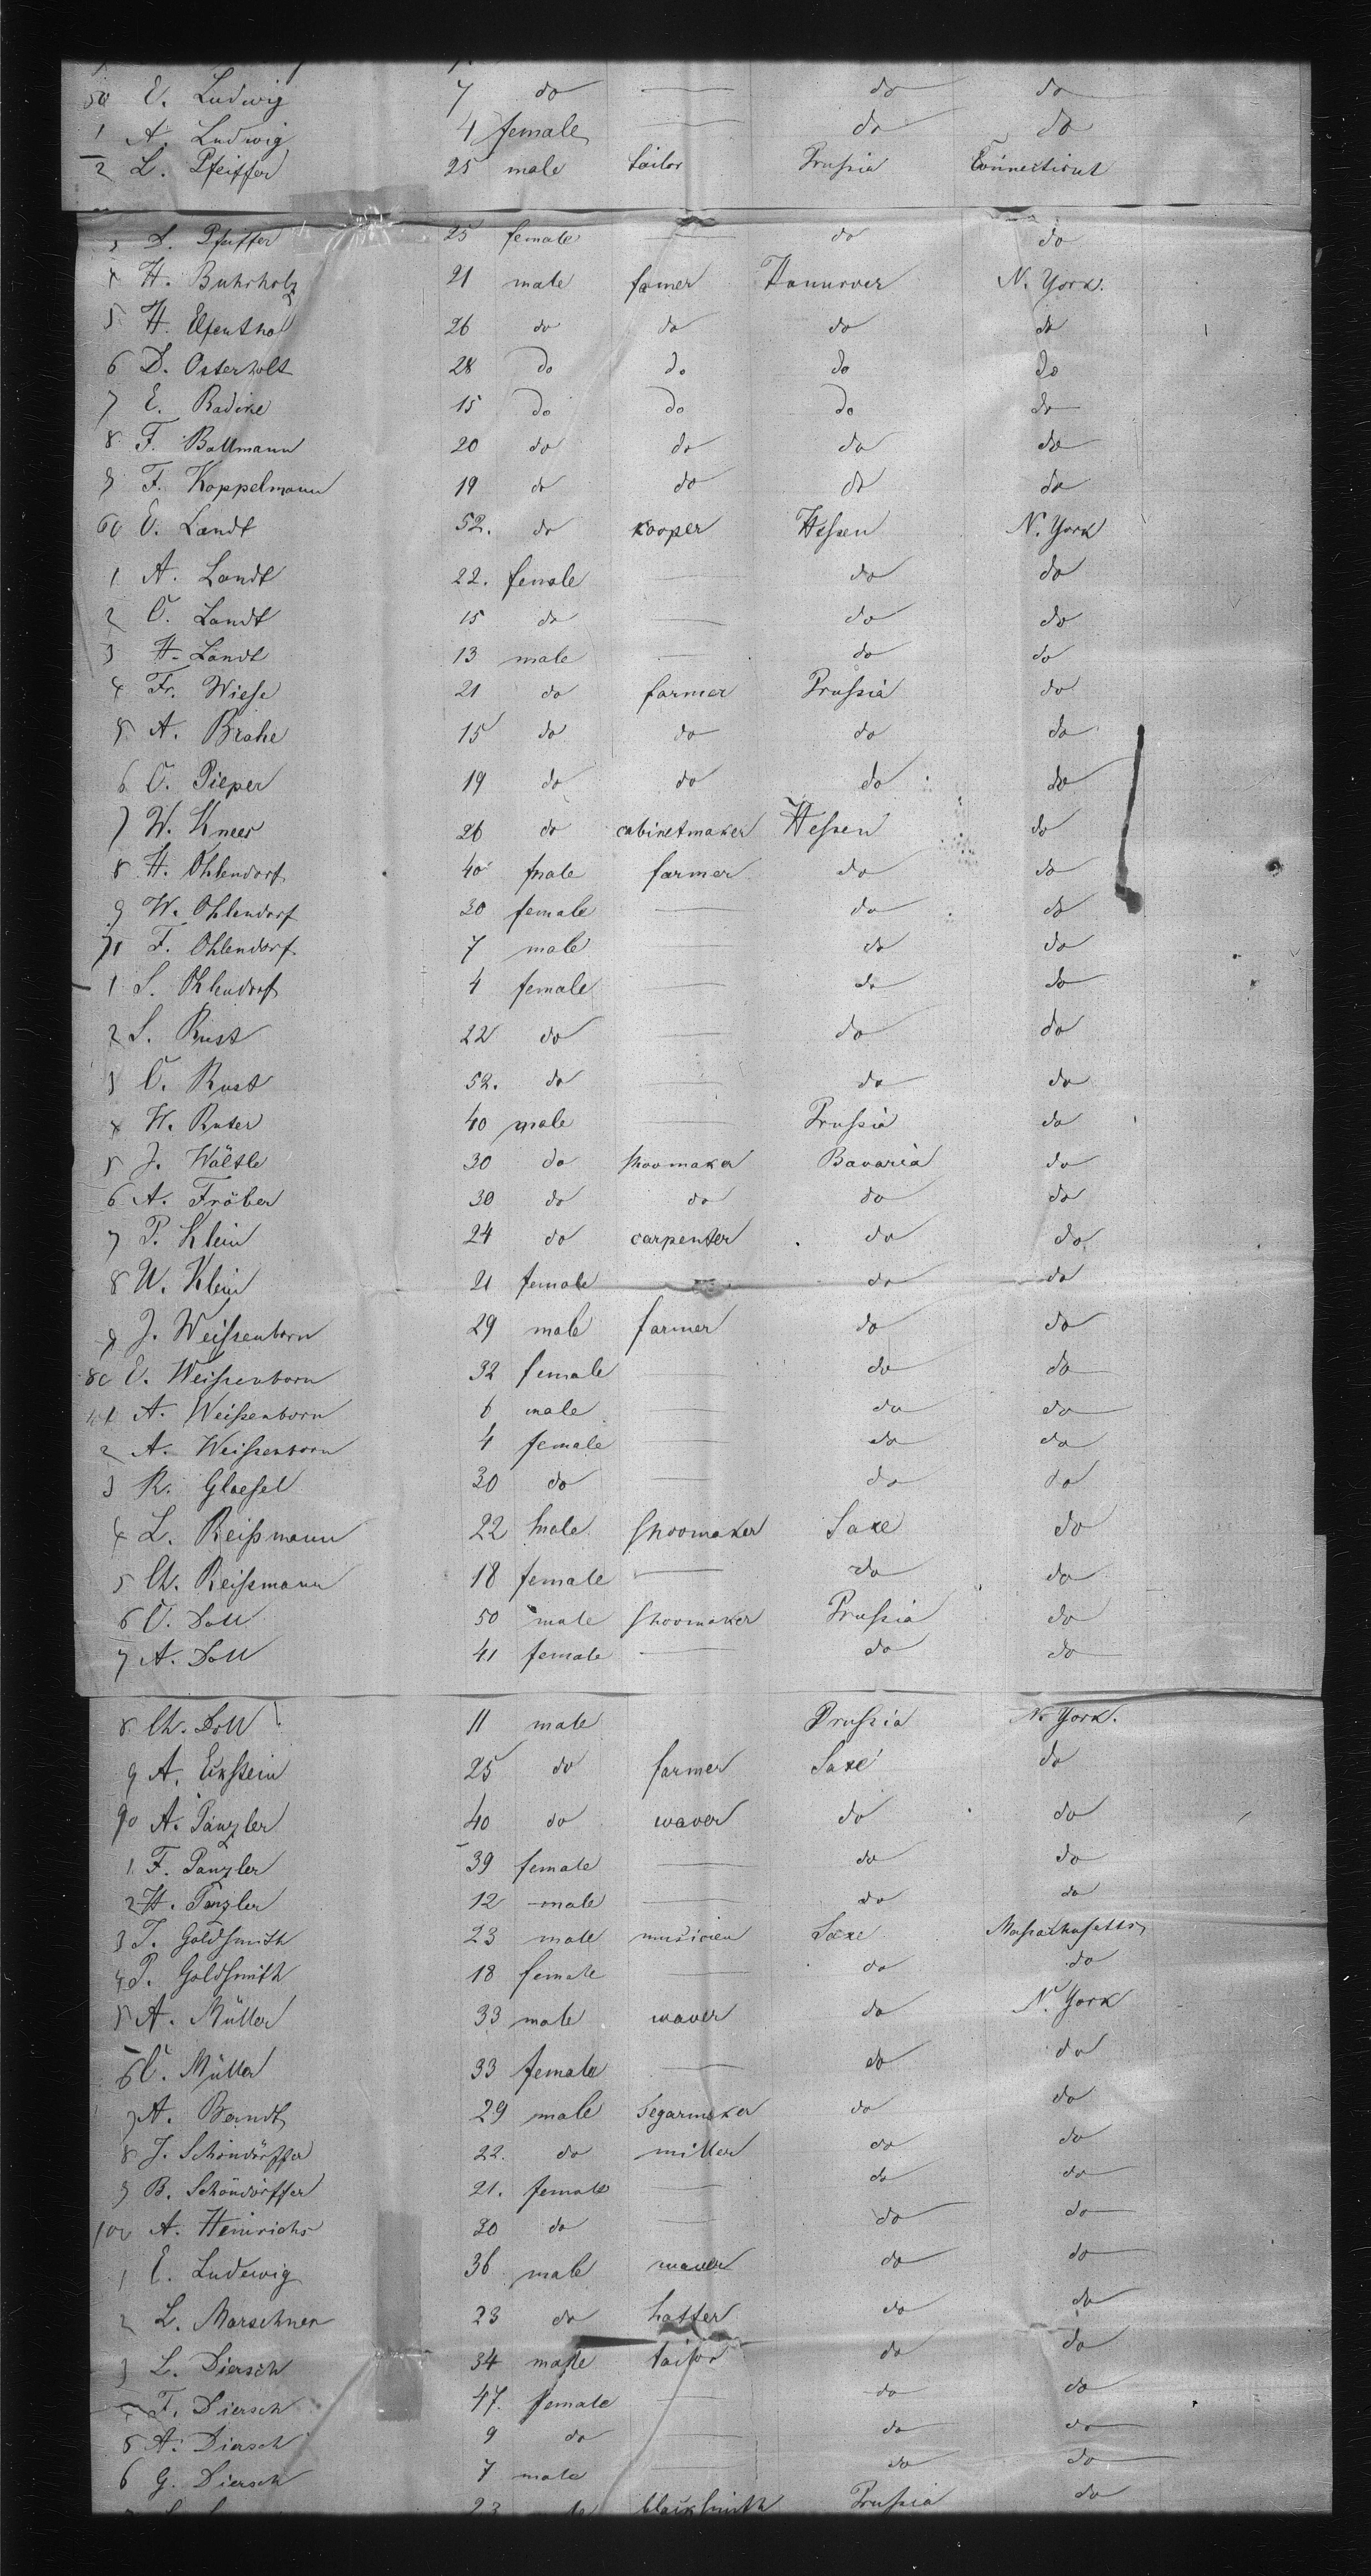 50 E. Ludwig 7 do — do do
1 A. Ludwig 4 female — do do
2 L. Pfeiffer 25 male tailor Prussia Connecticut
3 L. Pfeiffer 25 female — do do
4 H. Buhrholz 21 male famer Hannover N. York.
5 H. Elfenthal 26 do do do do
6 D. Osterholt 28 do do do do
7 E. Badine 15 do do do do
8 F. Ballmann 20 do do do do
9 F. Koppelmann 19 do do do do
60 C. Landt 52. do kooper Hessen N. York
1 A. Landt 22. female — do do
2 C. Landt 15 do — do do
3 H. Landt 13 male — do do
4 Fr. Wiese 21 do farmer Prussia do
5 A. Brahe 15 do do do do
6 C. Pieper 19 do do do do
7 W. Knees 26 do cabinetmaker Hessen do
8 H. Ohlendorf 40 male farmer do do
9 W. Ohlendorf 30 female — do do
70 F. Ohlendorf 7 male do do
1 S. Ohlendorf 4 female — do do
2 S. Rust 22 do — do do
3 C. Rust 52. do — do do
4 W. Ruter 40 male — Prussia do
5 J. Wältle 30 do shoomaker Bavaria do
6 A. Fröber 30 do do do do
7 P. Klein 24 do carpenter do do
8 W. Klein 21 female do do
9 J. Weissenborn 29 male farmer do do
80 E. Weissenborn 32 female — do do
1 A. Weissenborn 6 male — do do
2 A. Weissenborn 4 female — do do
3 R. Glaesel 30 do — do do
4 L. Reissmann 22 male shoomaker Saxe do
5 Ch. Reissmann 18 female — do do
6 C. Doll 50 male shoomaker Prussia do
7 A. Doll 41 female — do do
8 Ch. Doll 11 male Prussia N. York.
9 A. Eckstein 25 do farmer Saxe do
90 A. Panzler 40 do waver do do
1 F. Panzler 39 female — do do
2 H. Panzler 12 male — do do
3 T. Goldsmith 23 male musicien Saxe Massachusetts
4 P. Goldsmith 18 female — do do
5 A. Müller 33 male waver do N. York
6 C. Müller 33 female — do do
7 A. Brandt 29 male Segarmaker do do
8 J. Schöndörffer 22. do miller do do
9 B. Schöndörffer 21. female — do do
100 A. Heinrichs 30 do — do do
1 E. Ludewig 36 male waver do do
2 L. Marschner 23 do hatter do do
3 L. Diersch 34 male tailor do do
4 F. Diersch 47. female — do do
5 A. Diersch 9 do — do do
6 G. Diersch 7 male — do do
23 blacksmith Prussia do